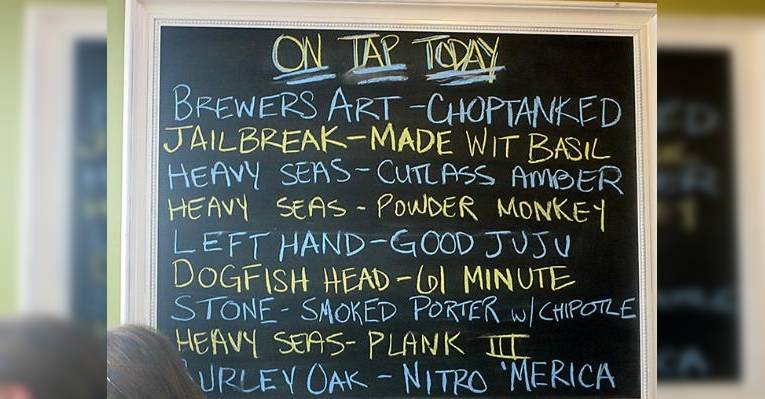 ON TAP TODAY
BREWERS ART - CHOPTANKED
JAILBREAK - MADE WIT BASIL
HEAVY SEAS - CUTLASS AMBER
HEAVY SEAS - POWDER MONKEY
LEFT HAND - GOOD JUJU
DOGFISH HEAD - 61 MINUTE
STONE - SMOKED PORTER w/ CHIPOTLE
HEAVY SEAS - PLANK III
BURLEY OAK - NITRO 'MERICA